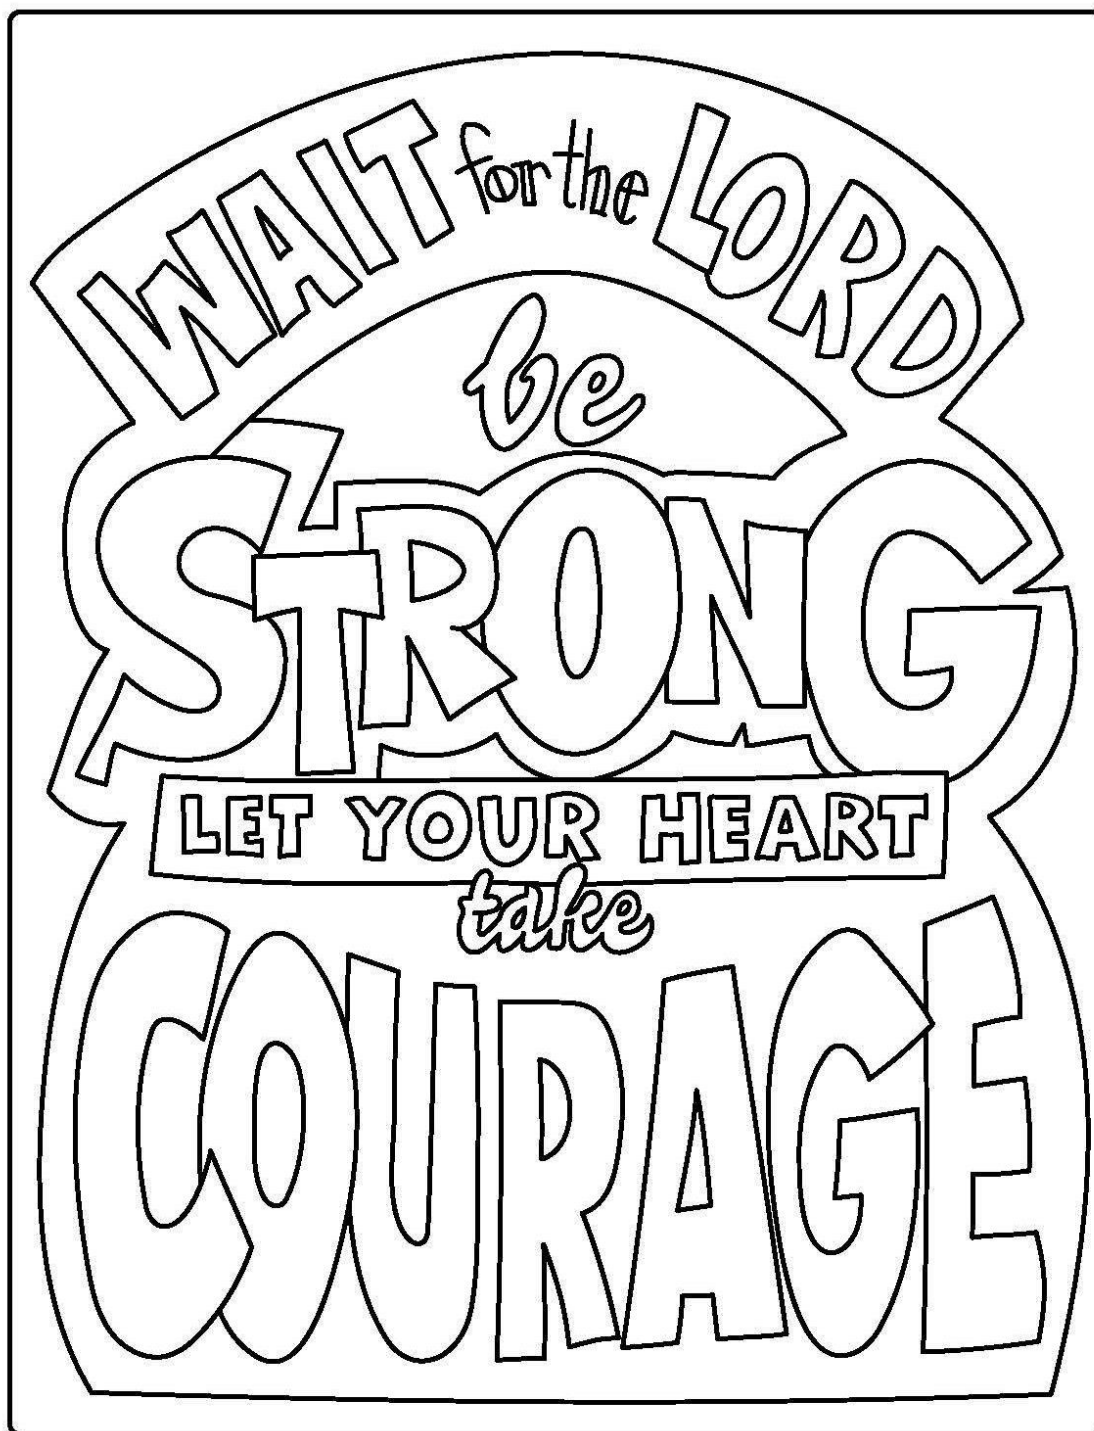 WAIT for the LORD
be
STRONG
LET YOUR HEART
take
COURAGE